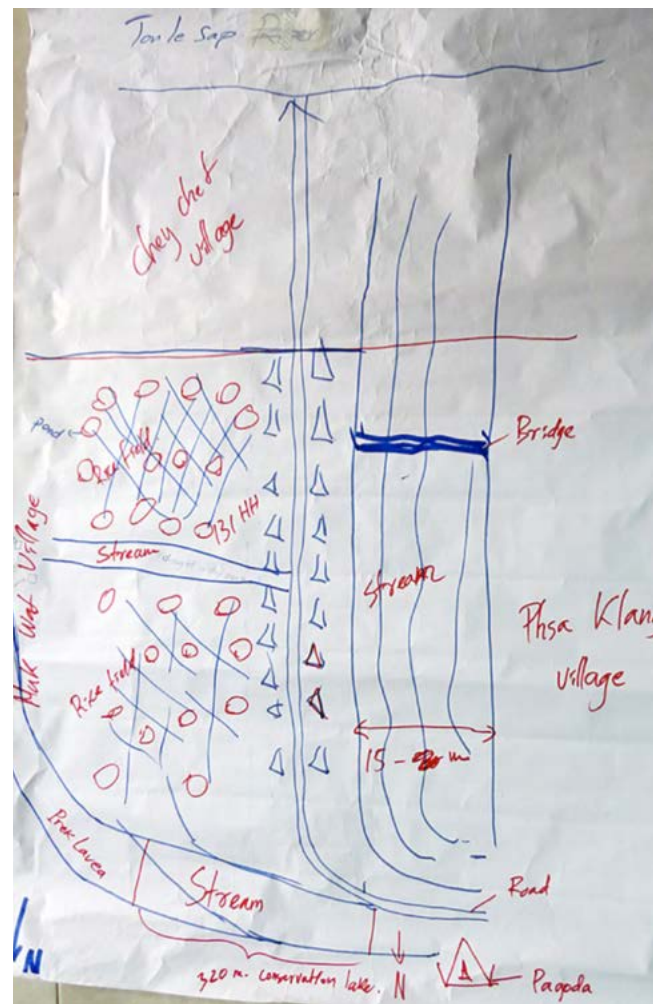 Tonle Sap River
Chey chet
village
Bridge
Pond
Rice field
131 HH
Stream
Stream
Phsa Klang
village
Muk Wat Village
Rice field
15 - 20 m
Prek Lavea
Stream
Road
N
320 m. conservation lake.
N
Pagoda